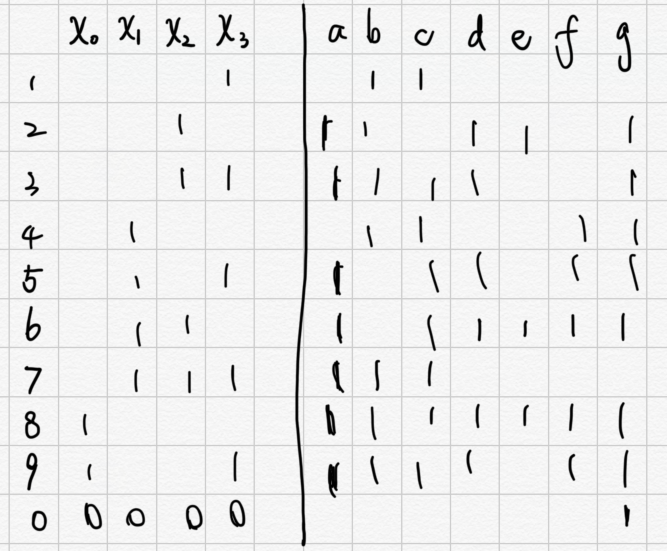 x₀ x₁ x₂ x₃ a b c d e f g
1 1 1 1
2 1 1 1 1 1 1
3 1 1 1 1 1 1 1
4 1 1 1 1 1
5 1 1 1 1 1 1 1
6 1 1 1 1 1 1 1 1
7 1 1 1 1 1 1
8 1 1 1 1 1 1 1 1
9 1 1 1 1 1 1 1 1
0 0 0 0 0 1